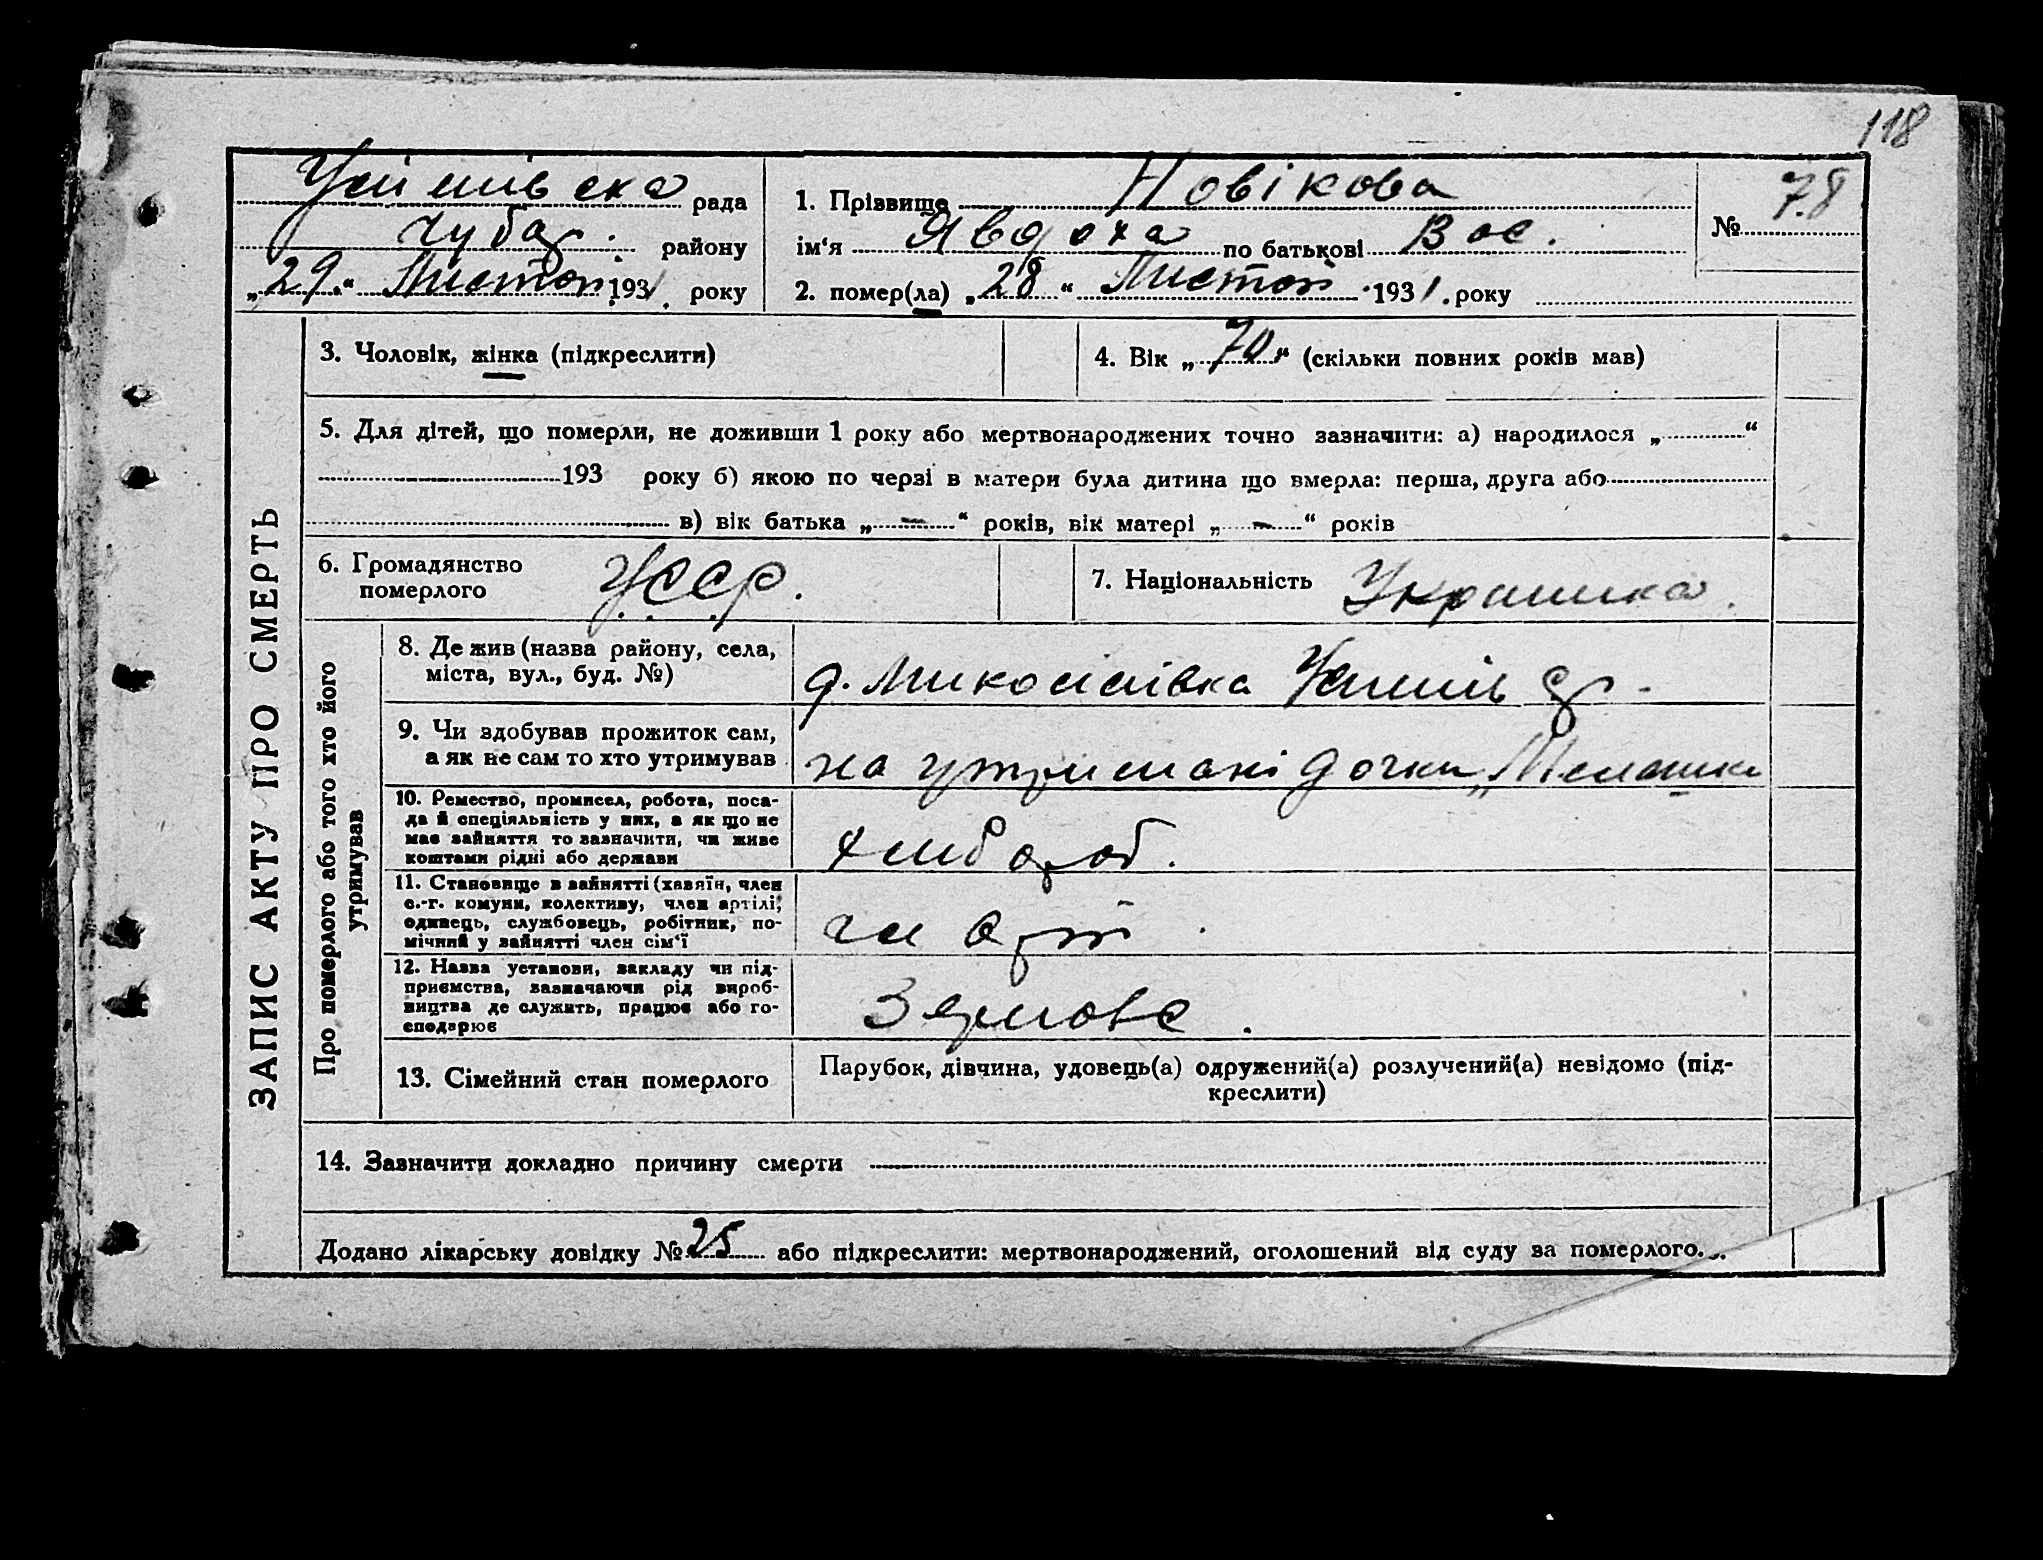 118
Успшівска рада
Чубар. району
„29.“ Листоп. 1931. року
1. Прізвище Новікова
ім‘я Явдоха по батькові Вас.
2. помер(ла) „28“ Листоп 1931. року
№ 78
ЗАПИС АКТУ ПРО СМЕРТЬ
3. Чоловік, жінка (підкреслити)
4. Вік „70“ (скільки повних років мав)
5. Для дітей, що померли, не доживши 1 року або мертвонароджених точно зазначити: а) народилося „ “
193 року б) якою по черзі в матери була дитина що вмерла: перша, друга або
в) вік батька „-“ років, вік матері „-“ років
6. Громадянство
померлого
УССР.
7. Національність Украинка.
Про померлого або того хто його
утримував
8. Де жив (назва району, села,
міста, вул., буд. №)
д. Миколаівка
9. Чи здобував прожиток сам,
а як не сам то хто утримував
на утримані дочки „Мелашки
10. Ремество, промисел, робота, поса-
да й спеціяльність у них, а як що не
має зайняття то зазначити, чи живе
коштами рідні або держави
хлібороб.
11. Становище в зайнятті (хазяїн, член
с.-г. комуни, колективу, член артілі,
одинець, службовець, робітник, по-
мічний у зайнятті член сім‘ї
чл арт.
12. Назва установи, закладу чи під-
приємства, зазначаючи рід вироб-
ництва де служить, працює або го-
сподарює
Зернове.
13. Сімейний стан померлого
Парубок, дівчина, удовець(а) одружений(а) розлучений(а) невідомо (під-
креслити)
14. Зазначити докладно причину смерти
Додано лікарську довідку № 25 або підкреслити: мертвонароджений, оголошений від суду за померлого.